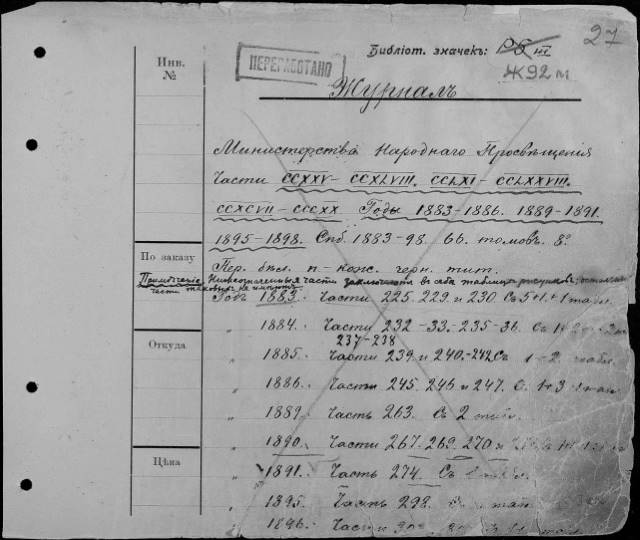 27
Библіот. значекъ: Рб III
ПЕРЕРАБОТАНО
Ж92м
Инв.
№
Журналъ
Министерства Народнаго Просвѣщенія
Части CCXXV–CCXLVIII. CCLXI–CCLXXVIII.
CCXCVII–CCCXX Годы 1883–1886. 1889–1891.
1895–1898. Спб. 1883–98. 66. томовъ. 8º
По заказу
Пер. бкл. п–кож. черн. тит.
Примѣчаніе Нижеозначенныя части заключаютъ въ себѣ таблицы рисунковъ;
части таковыхъ не имѣютъ
Годъ 1883. Части 225. 229. и 230. Съ 5+1+1 табл.
„ 1884. Части 232–33.–235–36. Съ
237–238
Откуда
„ 1885. Части 239. и 240.–242 Съ 1–2 табл.
„ 1886. Части 245. 246 и 247. С. 1+3
„ 1889. Часть 263. Съ 2 табл.
„ 1890. Части 267. 269. 270 и
Цѣна
„ 1891. Часть 274. Съ
„ 1895. Часть 298.
„ 1896. Части